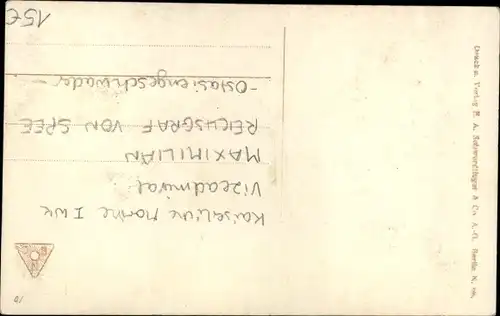 Kaiserliche Marine I WK
Vizeadmiral
MAXIMILIAN
REICHSGRAF VON SPEE
-Ostasiengeschwader-
15€
Verlag E. A. Schwerdtfeger & Co. A.-G. Berlin N.